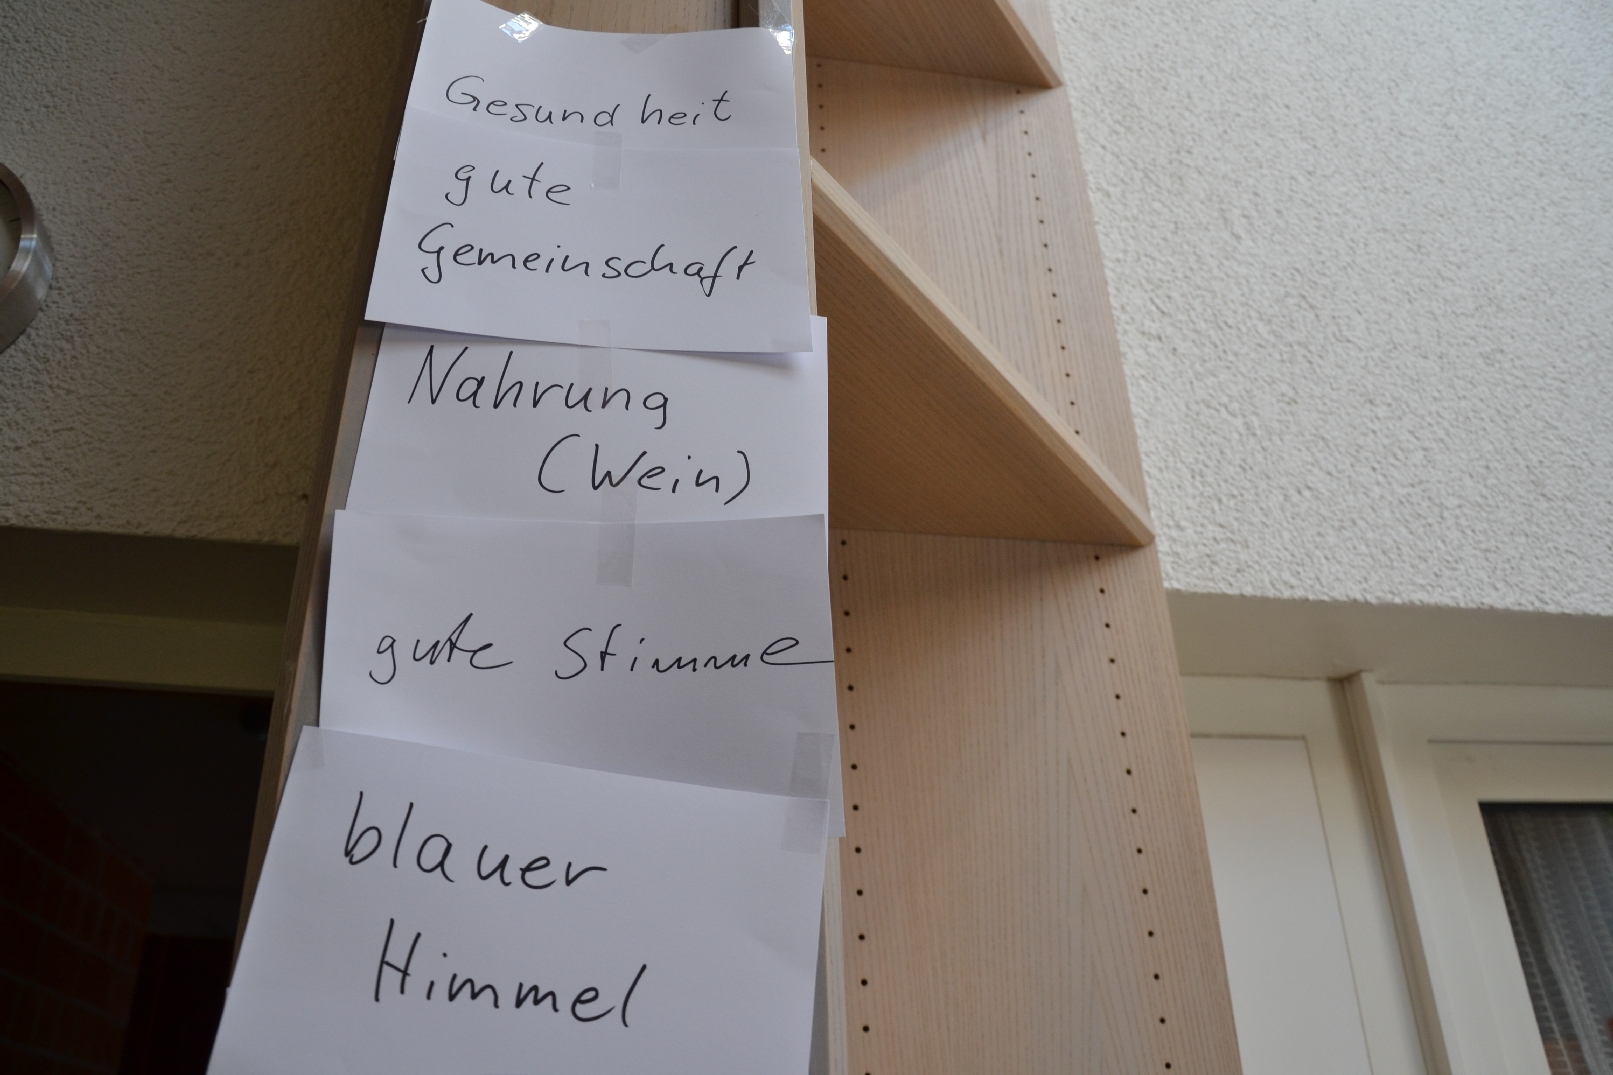 Gesundheit
gute
Gemeinschaft
Nahrung
(Wein)
gute Stimme
blauer
Himmel